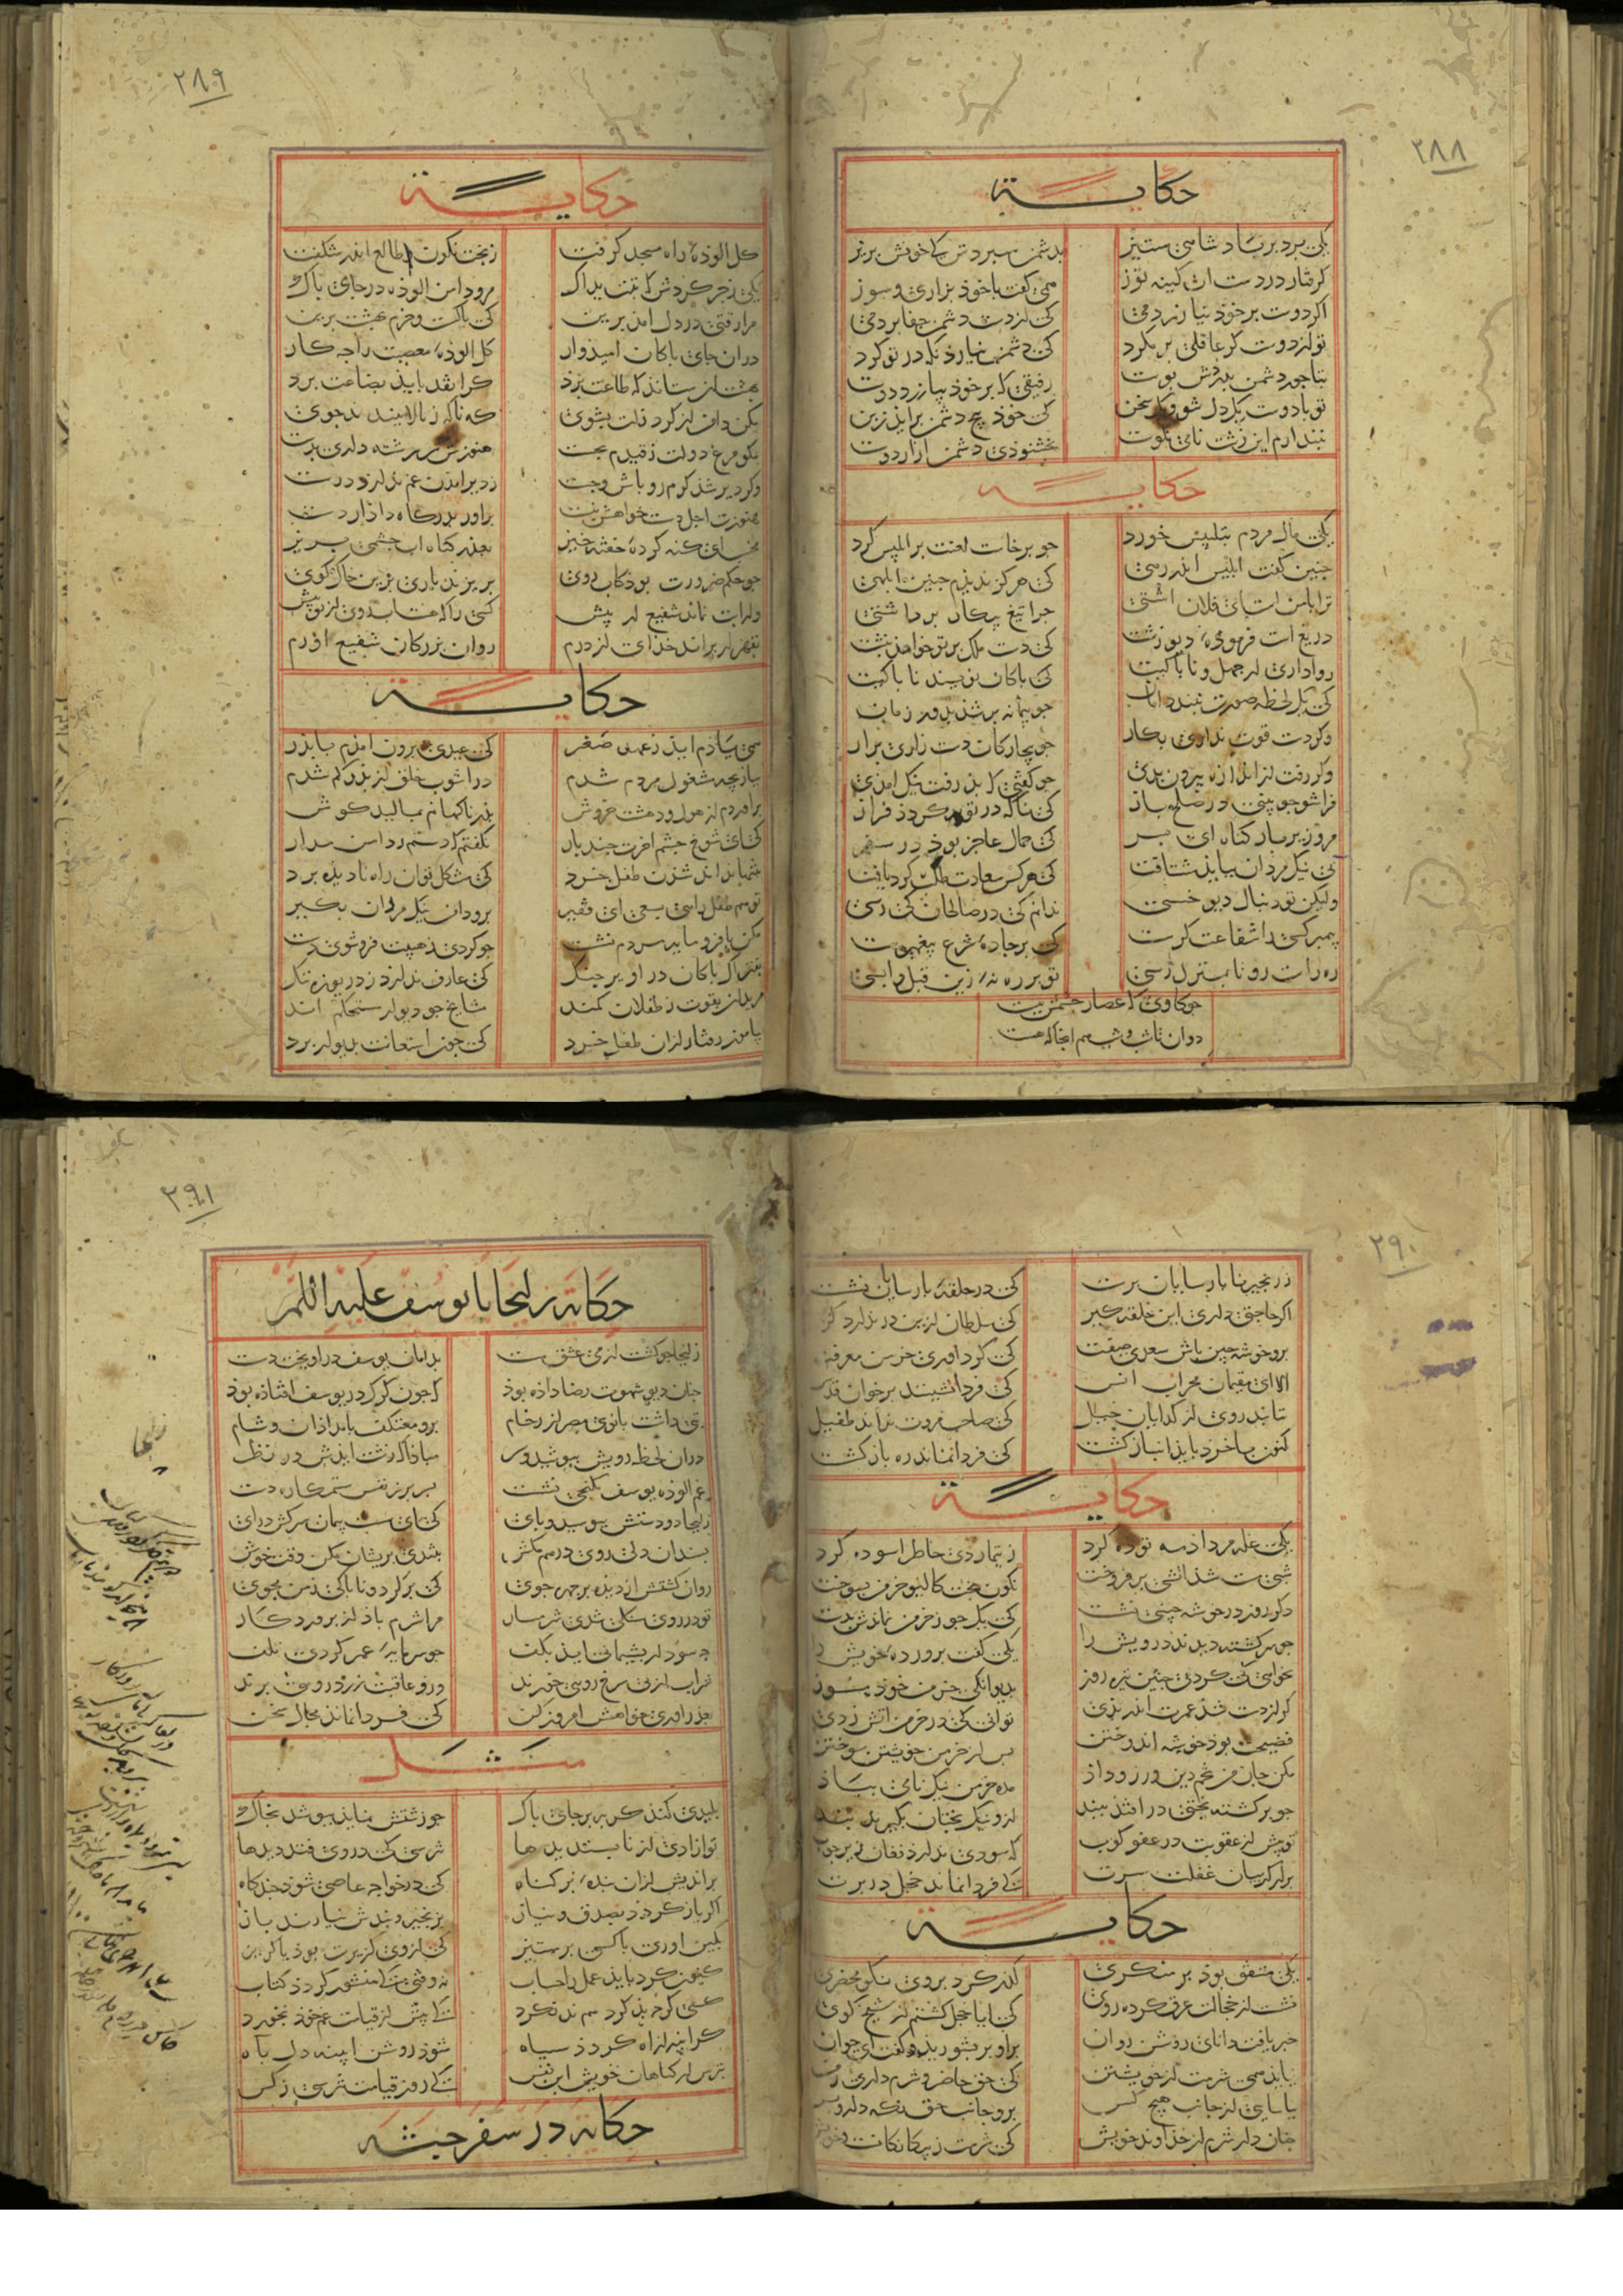 ۲۸۸
حکایة
یکی برد بر پادشاهی ستیز بدشمن سپردش کی خونش بریز
گرفتار در دست ان کینه توز همی گفت با خوذ بزاری و سوز
اگر دوست بر خوذ نیازردمی کی از دست دشمن جفا بردمی
تو از دوست گر عاقلی بر مگرد کی دشمن نیارد نگه در تو کرد
بتا جور دشمن بدردش پوست رفیقی که بر خوذ بیازرد دوست
تو با دوست یکدل شو و یک سخن کی خوذ بیخ دشمن براید ز بن
نپندارم این زشت نامی نکوست بخشنوذی دشمن ازار دوست
حکایة
یکی مال مردم بتلبیس خورد جو برخاست لعنت بر ابلیس کرد
جنین گفت ابلیس اندر رهی کی هرگز ندیذم جنین ابلهی
ترا با من است ای فلان اشتی جرا تیغ پیکار برداشتی
دریغ است فرموده دیو زشت کی دست ملک بر تو خواهد نبشت
روا داری از جهل و ناباکیت کی پاکان نویسند ناپاکیت
کی یک لحظه صورت نبندد امان جو پیمانه پر شد بدور زمان
وکر دست قوت نداری بکار جو بیچارگان دست زاری برار
وکر رفت از اندازه بیرون بدی جو گفتی که بد رفت نیک امدی
فرا شو جو بینی در صلح باز کی ناگه در توبه گردد فراز
مرو زیر بار گناه ای پسر کی حمال عاجز بوذ در سفر
پی نیک مردان بباید شتافت کی هر کس سعادت طلب کرد یافت
ولیکن تو دنبال دیو خسی ندانم کی در صالحان کی رسی
پیمبر کسی را شفاعت گرست کی بر جاده شرع پیغمبرست
ره راست رو تا بمنزل رسی تو بر ره نه زین قبل واپسی
جو گاوی که عصار جشمش ببست
دوان تا شب و شب هم انجا که هست
۲۸۹
حکایة
گل الوذه راه مسجد گرفت ز بخت نگون طالع اندر شگفت
یکی زجر کردش که تبت یداک مرو دامن الوذه در جای پاک
مرا رقتی در دل امد برین کی پاکست و خرم بهشت برین
دران جای پاکان امیذوار گل الوذه معصیت را چه کار
بهشت ان ستاند که طاعت برذ کرا نقد باید بضاعت برد
مکن دامن از گرد زلت بشوی که ناگه ز بالا ببندند جوی
مگو مرغ دولت ز قیدم بجست هنوزش سر رشته داری بدست
وکر دیر شذ گرم رو باش و جست ز دیر امدن غم ندارد درست
هنوزت اجل دست خواهش نبست براور بدرگاه داذار دست
مخسب ای گنه کرده خفته خیز بعذر گناه اب جشمی بریز
جو حکم ضرورت بوذ کاب روی بریزند باری برین خاک کوی
ور ابت نماند شفیع ار پیش کسی را که هست ابروی از تو بیش
بقهر ار براند خذای از درم روان بزرگان شفیع اورم
حکایة
همی یاذم ایذ ز عهد صغر کی عیدی برون امدم با پذر
ببازیچه مشغول مردم شدم در اشوب خلق از پذر گم شدم
براوردم از هول و دهشت خروش پذر ناگهانم بمالید گوش
کی ای شوخ جشم اخرت جند بار بگفتم که دستم ز دامن مدار
بتنها نداند شذن طفل خرد کی مشکل توان راه نادیذه برد
تو هم طفل راهی بسعی ای فقیر برو دامن نیک مردان بگیر
مکن با فرومایه مردم نشست جو کردی ز هیبت فروشوی دست
بفتراک پاکان دراویز جنگ کی عارف ندارد ز دریوزه ننگ
مریدان بقوت ز طفلان کمند مشایخ جو دیوار مستحکم اند
بیاموز رفتار از ان طفل خرد کی جون استعانت بدیوار برد
۲۹۰
ز زنجیر ناپارسایان برست کی در حلقه پارسایان نشست
اگر حاجتی داری این حلقه گیر کی سلطان ازین در ندارد گزیر
برو خوشه جین باش سعدی صفت کی گرد اوری خرمن معرفت
الا ای مقیمان محراب انس کی فردا نشینند بر خوان قدس
متابید روی از گدایان خیل کی صاحب مروت نراند طفیل
کنون با خرد باید انباز گشت کی فردا نماند ره بازگشت
حکایة
یکی غله مرداذ مه توده کرد ز تیمار دی خاطر اسوده کرد
شبی مست شذ اتشی بر فروخت نگون بخت کالیو خرمن بسوخت
دگر روز در خوشه جینی نشست کی یک جو ز خرمن نماندش بدست
جو سرگشته دیدند درویش را یکی گفت پرورده خویش را
نخواهی کی گردی جنین تیره روز بدیوانگی خرمن خوذ مسوز
گر از دست شذ عمرت اندر بدی تو انی کی در خرمن اتش زدی
فضیحت بوذ خوشه اندوختن پس از خرمن خویشتن سوختن
مکن جان من تخم دین ورز و داذ مده خرمن نیک نامی بباذ
جو برگشته بختی در افتذ ببند ازو نیک بختان بگیرند پند
تو پیش از عقوبت در عفو کوب که سوذی ندارد فغان زیر جوب
برار از گریبان غفلت سرت کی فردا نماند خجل در برت
حکایة
یکی متفق بوذ بر منکری گذر کرد بروی نکو محضری
نشست از خجالت عرق کرده روی کی ایا خجل گشتم از شیخ کوی
خبر یافت دانای روشن روان براو بر بشورید و گفت ای جوان
نیاید همی شرمت از خویشتن کی حق حاضر و شرم داری ز من
نیاسایی از جانب هیچ کس برو جانب حق نگه دار و بس
جنان دار شرم از خذاوند خویش کی شرمت ز بیگانگانست و خویش
۲۹۱
حکایة زلیخا با یوسف علیه السلم
زلیخا جو گشت از می عشق مست بدامان یوسف دراویخت دست
جنان دیو شهوت رضا داذه بوذ که جون گرگ در یوسف افتاذه بوذ
بتی داشت بانوی مصر از رخام برو معتکف بامدادان و شام
دران لحظه رویش بپوشید و سر مباذا که زشت ایذش در نظر
غم الوذه یوسف بکنجی نشست بسر بر ز نفس ستمکاره دست
زلیخا دو دستش ببوسید و پای کی ای سست پیمان سرکش درای
بسندان دلی روی در هم مکش بتندی پریشان مکن وقت خوش
روان گشتش از دیذه بر جهره جوی کی برگرد و ناپاکی ز من مجوی
تو در روی سنگی شدی شرمسار مرا شرم باذ از پروردگار
چه سوذ از پشیمانی ایذ بکف جو سرمایه عمر کردی تلف
شراب از پی سرخ رویی خورند وزو عاقبت زرد رویی برند
بعذر اوری خواهش امروز کن کی فردا نماند مجال سخن
مثل
پلیدی کند گربه بر جای پاک جو زشتش نماید بپوشد بخاک
تو ازاذی از ناپسندیدها نترسی که در وی فتد دیدها
براندیش از ان بنده پر گناه کی در خواجه عاصی شوذ جند گاه
اگر باز گردذ بصدق و نیاز بزنجیر و بندش نیارند باز
بکین اوری با کسی بر ستیز کی از وی گزیرت بوذ یا گریز
کنون کرد باید عمل را حساب نه وقتی کی منشور گردذ کتاب
کسی گرچه بد کرد هم بد نکرد کی پیش از قیامت غم خوذ بخورد
گر ایینه از اه گردذ سیاه شوذ روشن ایینه دل باه
بترس از گناهان خویش این نفس کی روز قیامت نترسی ز کس
حکایة در سفر حبشه
زلیخا